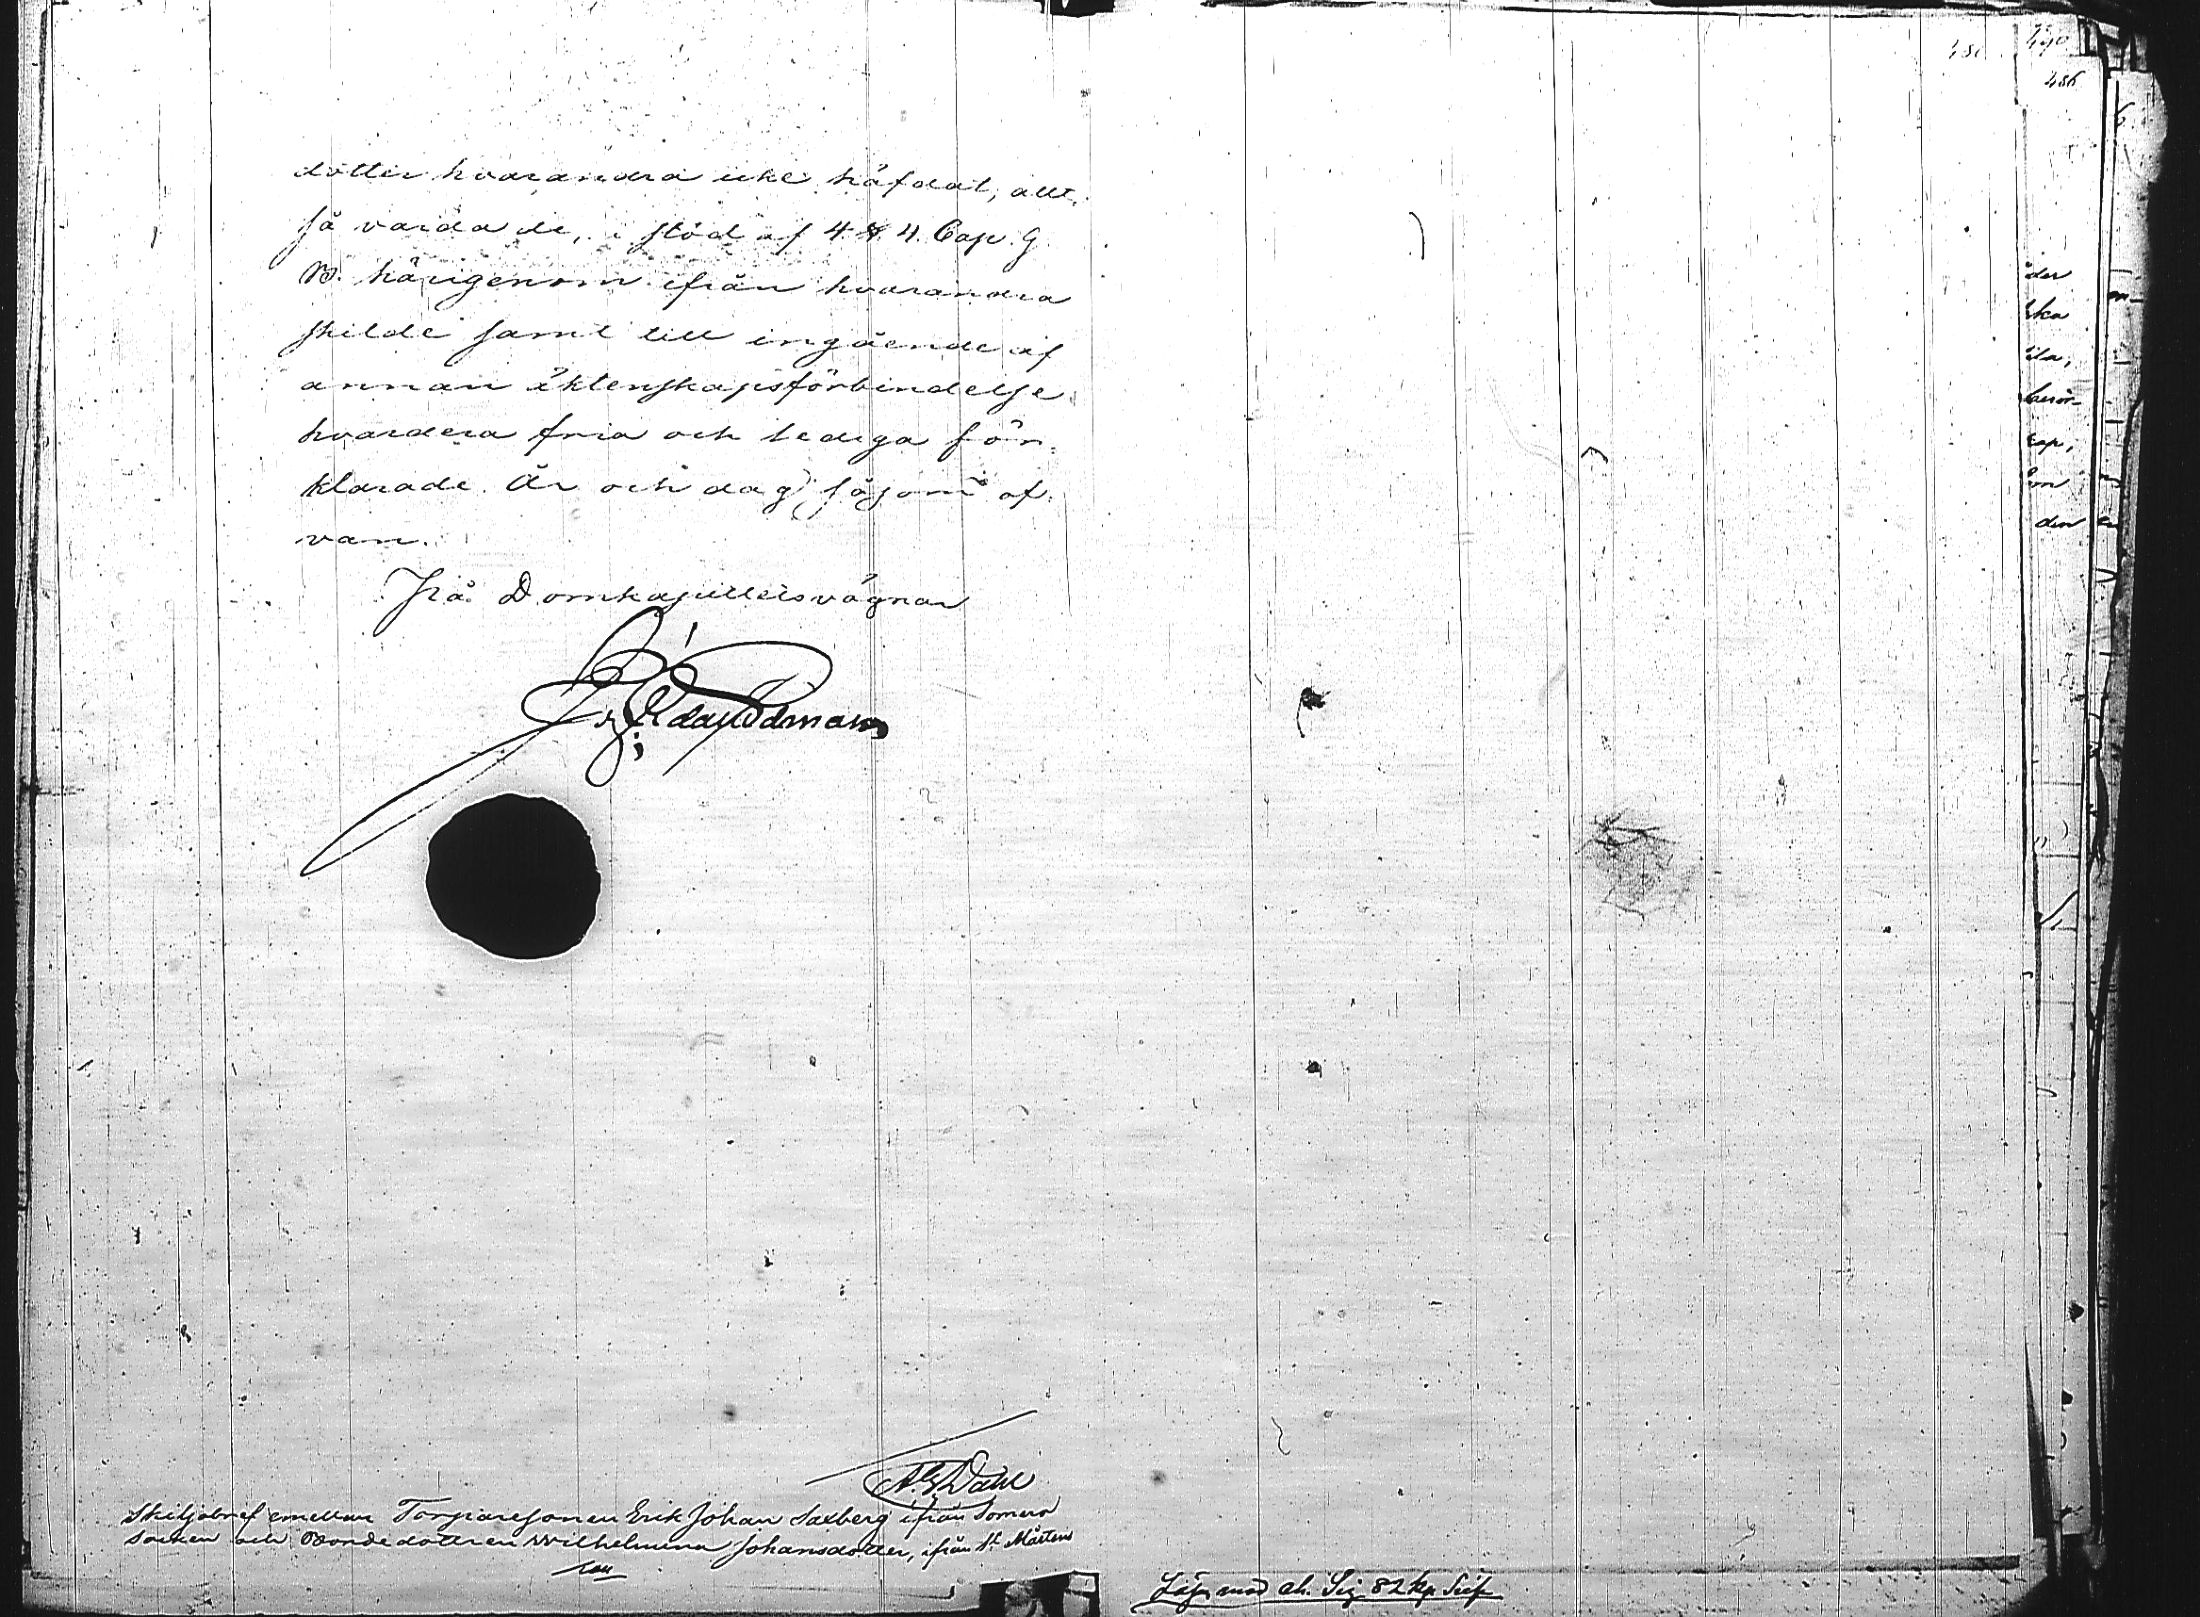 dotter hvarandra icke häfdat, allt
så varda de, i stöd af 4 § 4. Cap. G
B. härigenom ifrån hvarandra
skilde samt till ingående af
annan äktenskapsförbindelse
hvardera fria och lediga för-
klarade. År och dag, såsom of-
van.
På Domkapitlets vägnar
A. G. Dahl
Skiljobref emellan Torparesonen Erik Johan Saxberg ifrån Somero
socken och Bondedottren Wilhelmina Johansdotter, ifrån St Mårtens
486
490
der
ska